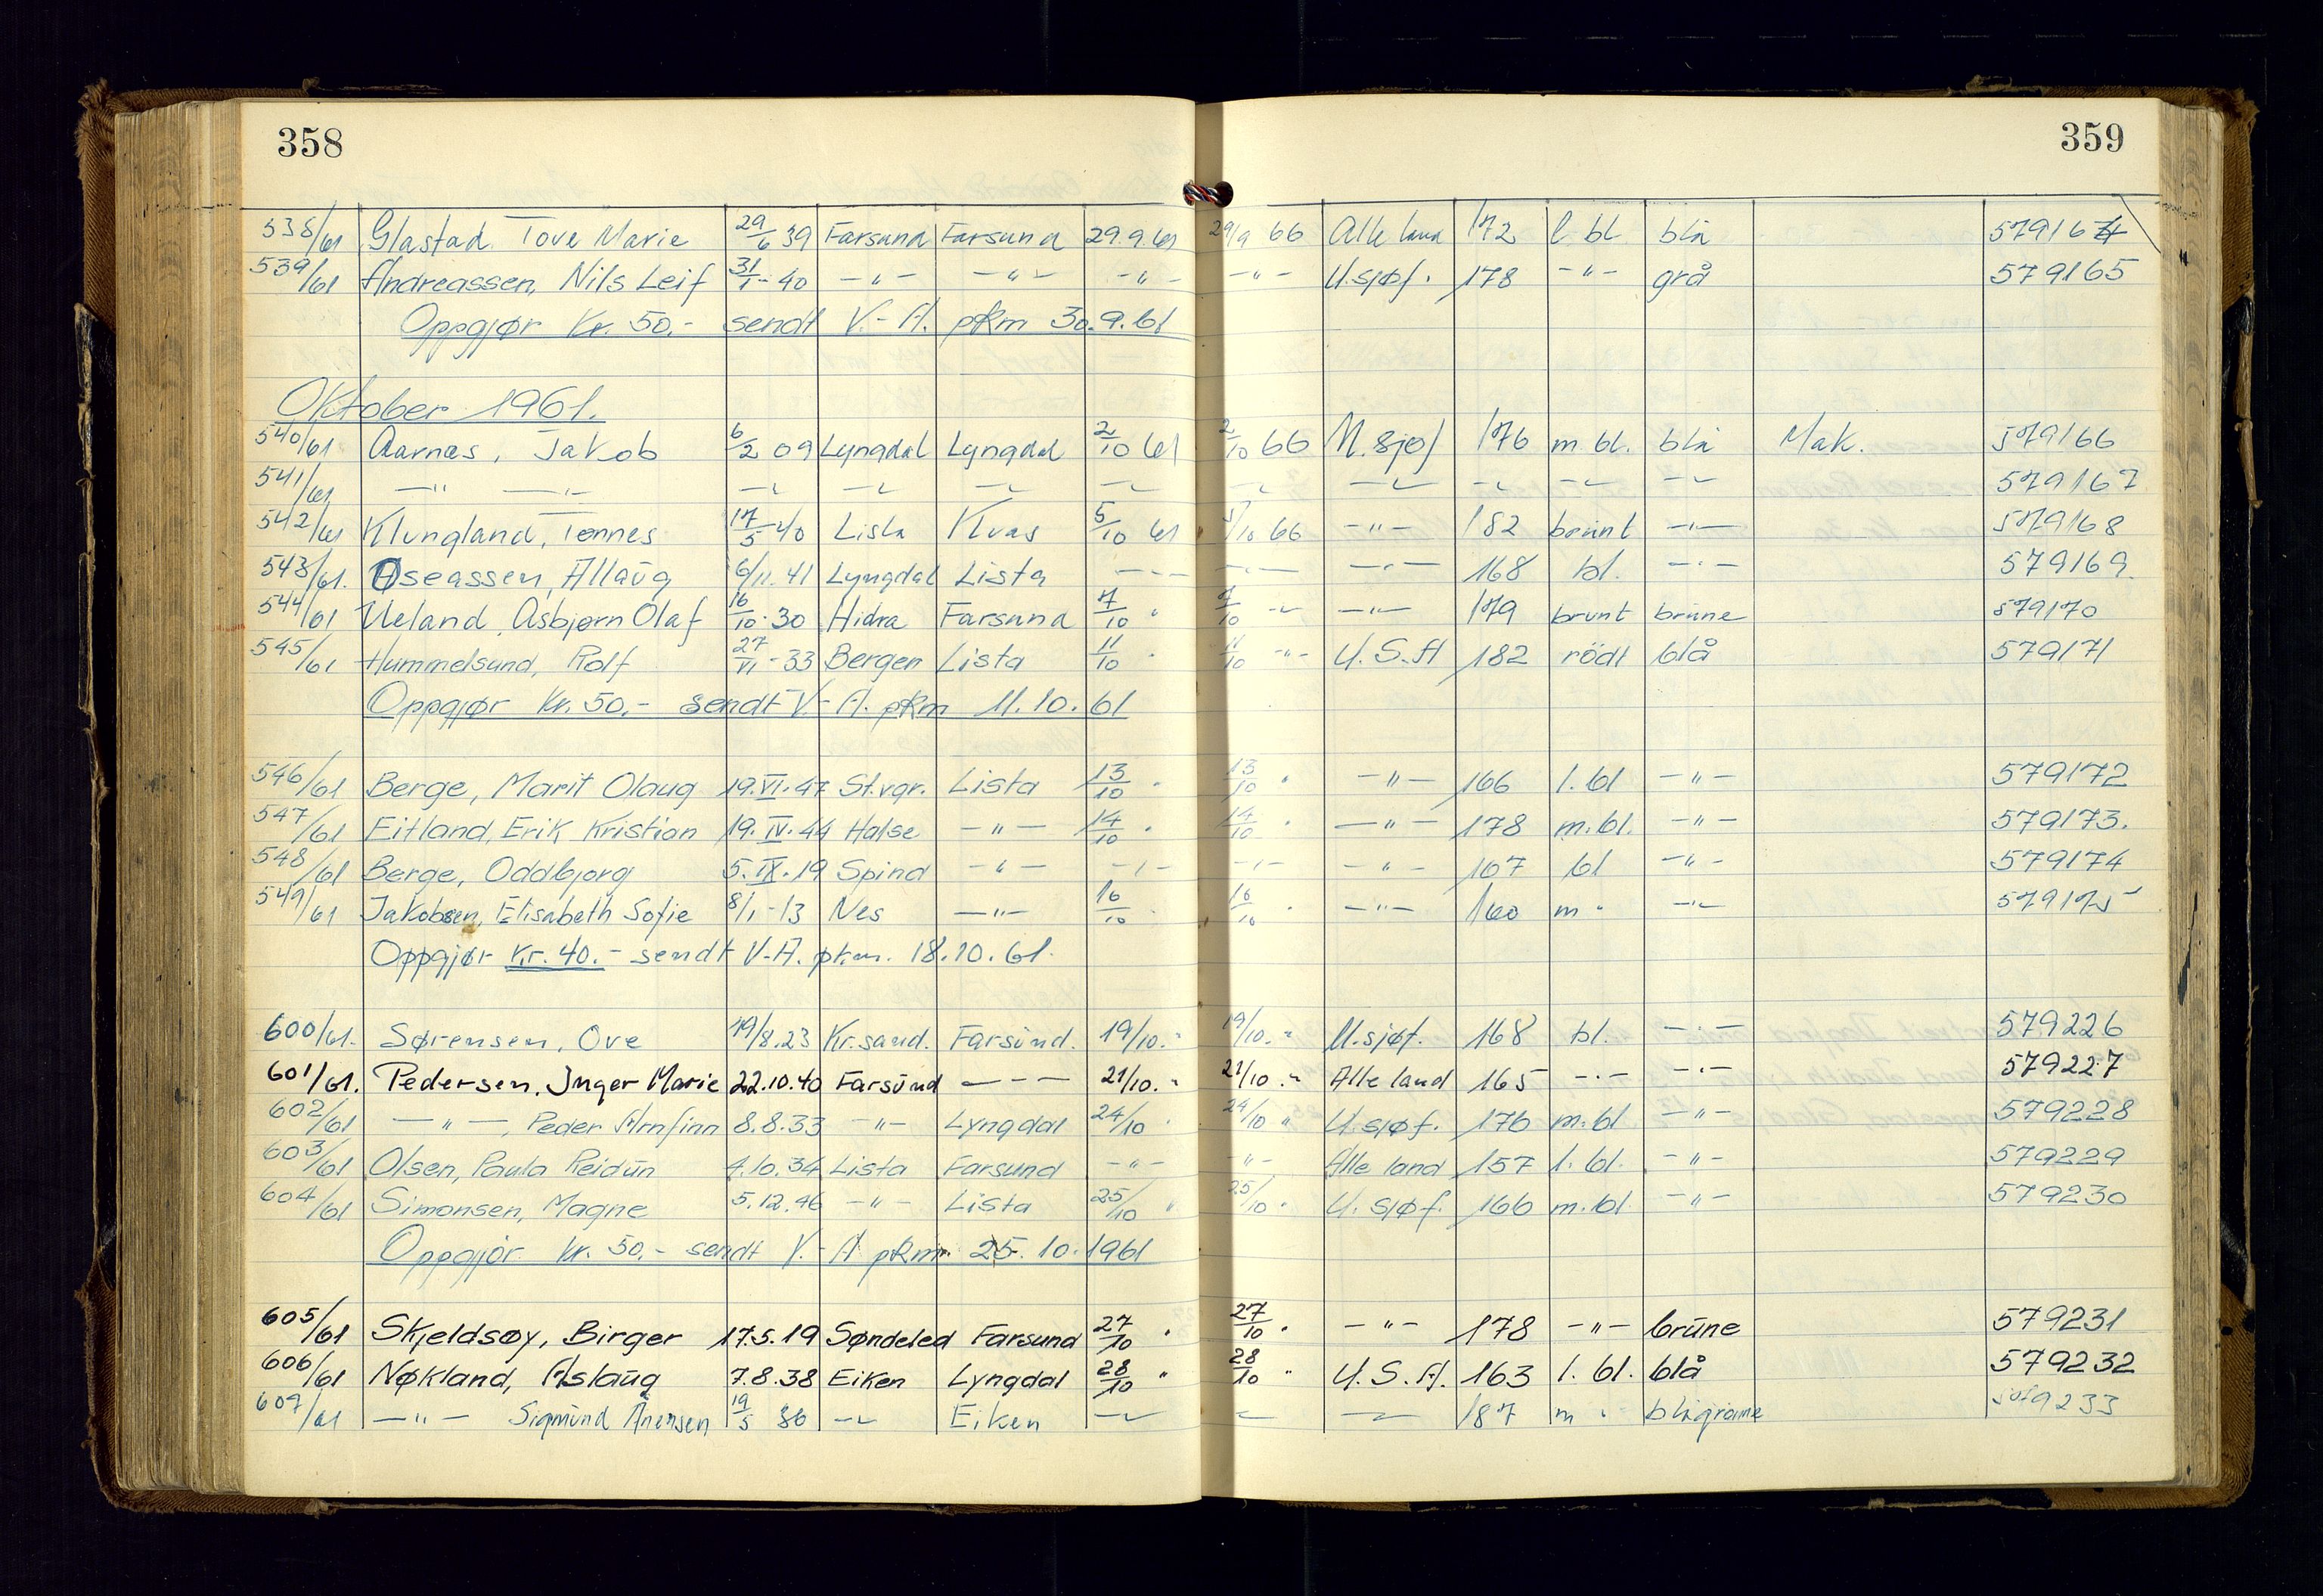 358
359
538/61 Glastad Tove Marie 29/6 39 Farsund Farsund 29.9.61 29/9 66 Alle land 172 l bl blå 579164
539/61 Andreassen, Nils Leif 31/1-40 -"- -"- -"- -"- U.sjøf. 178 -"- grå 579165
Oppgjør Kr. 50.- sendt V.-A. pkm 30.9.61
Oktober 1961.
540/61 Aarnæs, Jakob 6/2 09 Lyngdal Lyngdal 2/10 61 2/10 66 U.sjøf 176 m.bl. blå Mak. 579166
541/61 -"- -"- -"- -"- -"- -"- -"- -"- -"- -"- -"- 579167
542/61 Klungland, Tønnes 17/5-40 Lista Kvås 5/10 61 5/10 66 -"- 182 brunt -"- 579168
543/61. Oseassen, Allaug 6/11.41 Lyngdal Lista -"- -"- -"- 168 bl. -"- 579169.
544/61 Ueland, Asbjørn Olaf 16/10-30 Hidra Farsund 7/10 " 7/10 -"- -"- 179 brunt brune 579170
545/61 Hummelsund, Rolf 27/VI-33 Bergen Lista 11/10 " 11/10 -"- U.S.A 182 rödt blå 579171
Oppgjør Kr. 50.- sendt V.-A. pkm 11.10.61
546/61 Berge, Marit Olaug 19.VI.47 St.vgr. Lista 13/10 " 13/10 " -"- 166 l.bl -"- 579172
547/61 Eitland, Erik Kristian 19.IV.44 Halse -"- 14/10 " 14/10 " -"- 178 m.bl. -"- 579173.
548/61 Berge, Oddbjørg 5.IX.19 Spind -"- -"- -"- -"- 167 bl -"- 579174
549/61 Jakobsen, Elisabeth Sofie 8/1-13 Nes -"- 16/10 " 16/10 " -"- 160 m " -"- 579175
Oppgjør Kr. 40.- sendt V.-A. pkm. 18.10.61.
600/61. Sørensen, Ove 19/8.23 Kr.sand. Farsund. 19/10. " 19/10. " U.sjøf. 168 bl. -"- 579226
601/61. Pedersen, Inger Marie 22.10.40 Farsund -"- 21/10. " 21/10. " Alle land 165 -"- -"- 579227
602/61 -"-, Peder Arnfinn 8.8.33 -"- Lyngdal 24/10 " 24/10 " U.sjøf. 176 m.bl -"- 579228
603/61 Olsen, Paula Reidun 4.10.34 Lista Farsund -"- -"- Alle land 157 l.bl. -"- 579229
604/61 Simonsen, Magne 5.12.46 -"- Lista 25/10 " 25/10 " U.sjøf. 166 m.bl. -"- 579230
Oppgjør kr. 50.- sendt V.-A pkm. 25.10.1961
605/61 Skjeldsøy, Birger 17.5.19 Søndeled Farsund 27/10 " 27/10 " -"- 178 -"- brune 579231
606/61 Nøkland, Aslaug 7.8.38 Eiken Lyngdal 28/10 " 28/10 " U.S.A. 163 l.bl. blå 579232
607/61 -"- Sigmund Arensen 19/5 36 -"- Eiken -"- -"- -"- 187 m " blågrønne 579233